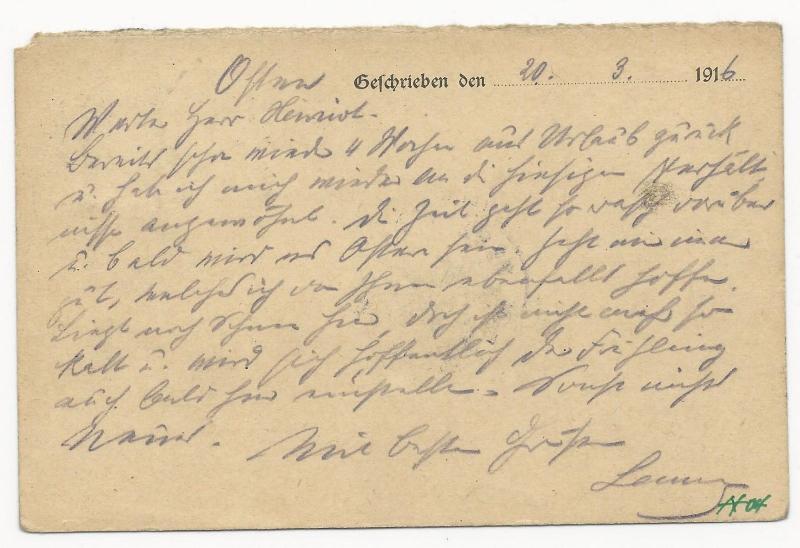 Osten Geschrieben den 20. 3. 1916
Werter Herr Henriot.
Bereits schon wieder 4 Wochen aus Urlaub zurück
u. hab ich mich wieder an die hiesigen Verhält
nisse angewöhnt. Die Zeit geht so rasch vorüber
u. bald wird es Ostern sein. Geht mir immer
gut, welches ich von Ihnen ebenfalls hoffe.
Liegt noch Schnee hier, doch ist nicht mehr so
kalt u. wird sich hoffentlich der Frühling
auch bald hier einstellen. Sonst nichts
Neues. Mit besten Grüßen